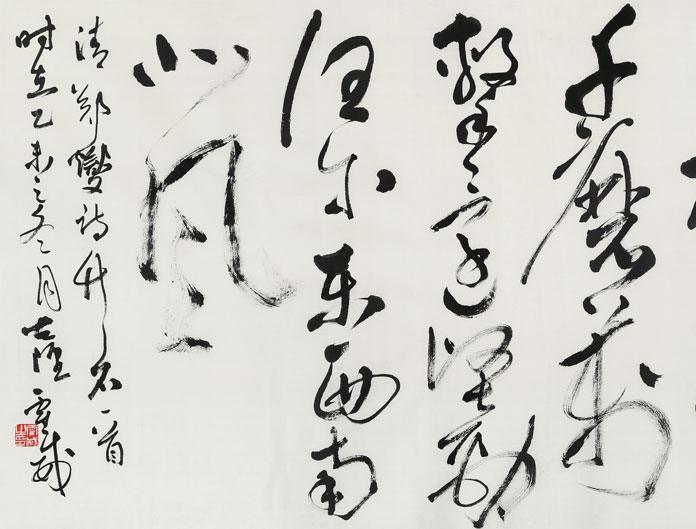 千磨萬
擊還堅勁
任尔東西南
北風
清鄭燮詩竹石一首
时在乙未之冬月